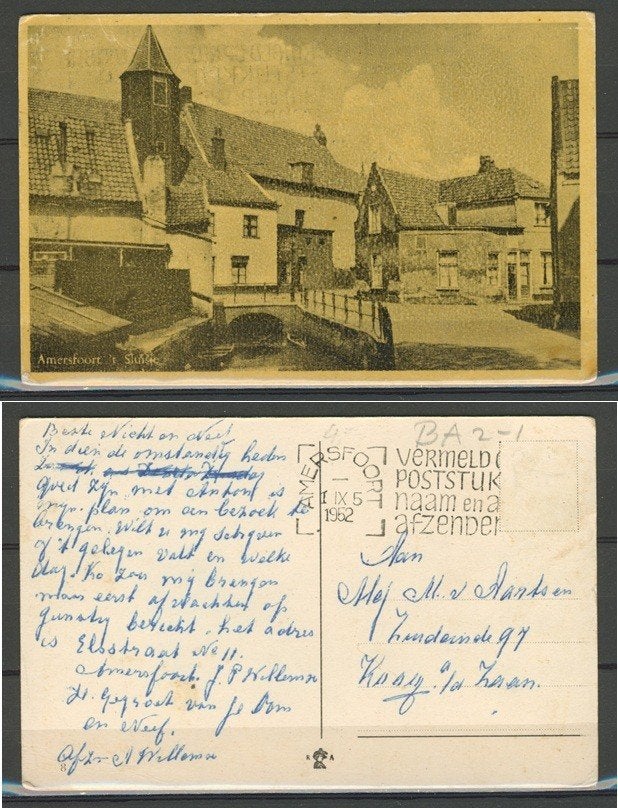 Amersfoort 't Sluisje
Beste Nicht en Neef
In dien de omstandig heden
goed zijn met Antoon is
mijn plan om een bezoek te
brengen. Wilt u mij schrijven
of 't gelegen valt en welke
dag. Ko zou mij brengen
maar eerst afwachten op
gunstig bericht. het adres
is Elsstraat No 11.
Amersfoort. J. P Willemse
Gegroet van Je Oom
en Neef.
Afz. A Willemse
8
BA 2-1
AMERSFOORT
IX 5
1952
VERMELD
POSTSTUK
naam en a
afzender
Aan
Mej M. v Aartsen
Zuideinde 97
Koog a/d Zaan.
R A